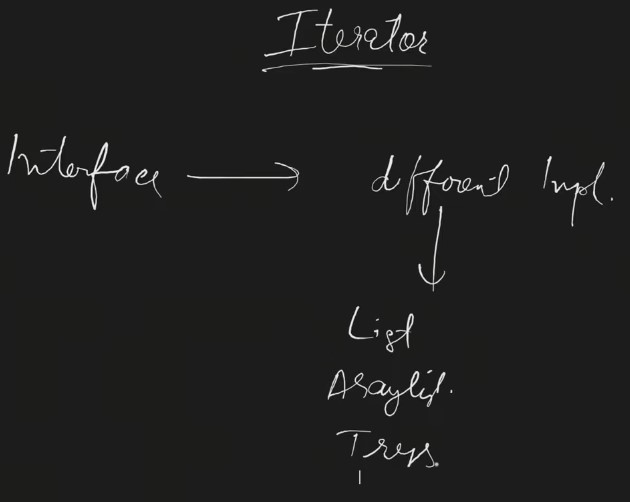 Iterator
Interface → different Impl.
↓
List
Arraylist.
Trees.